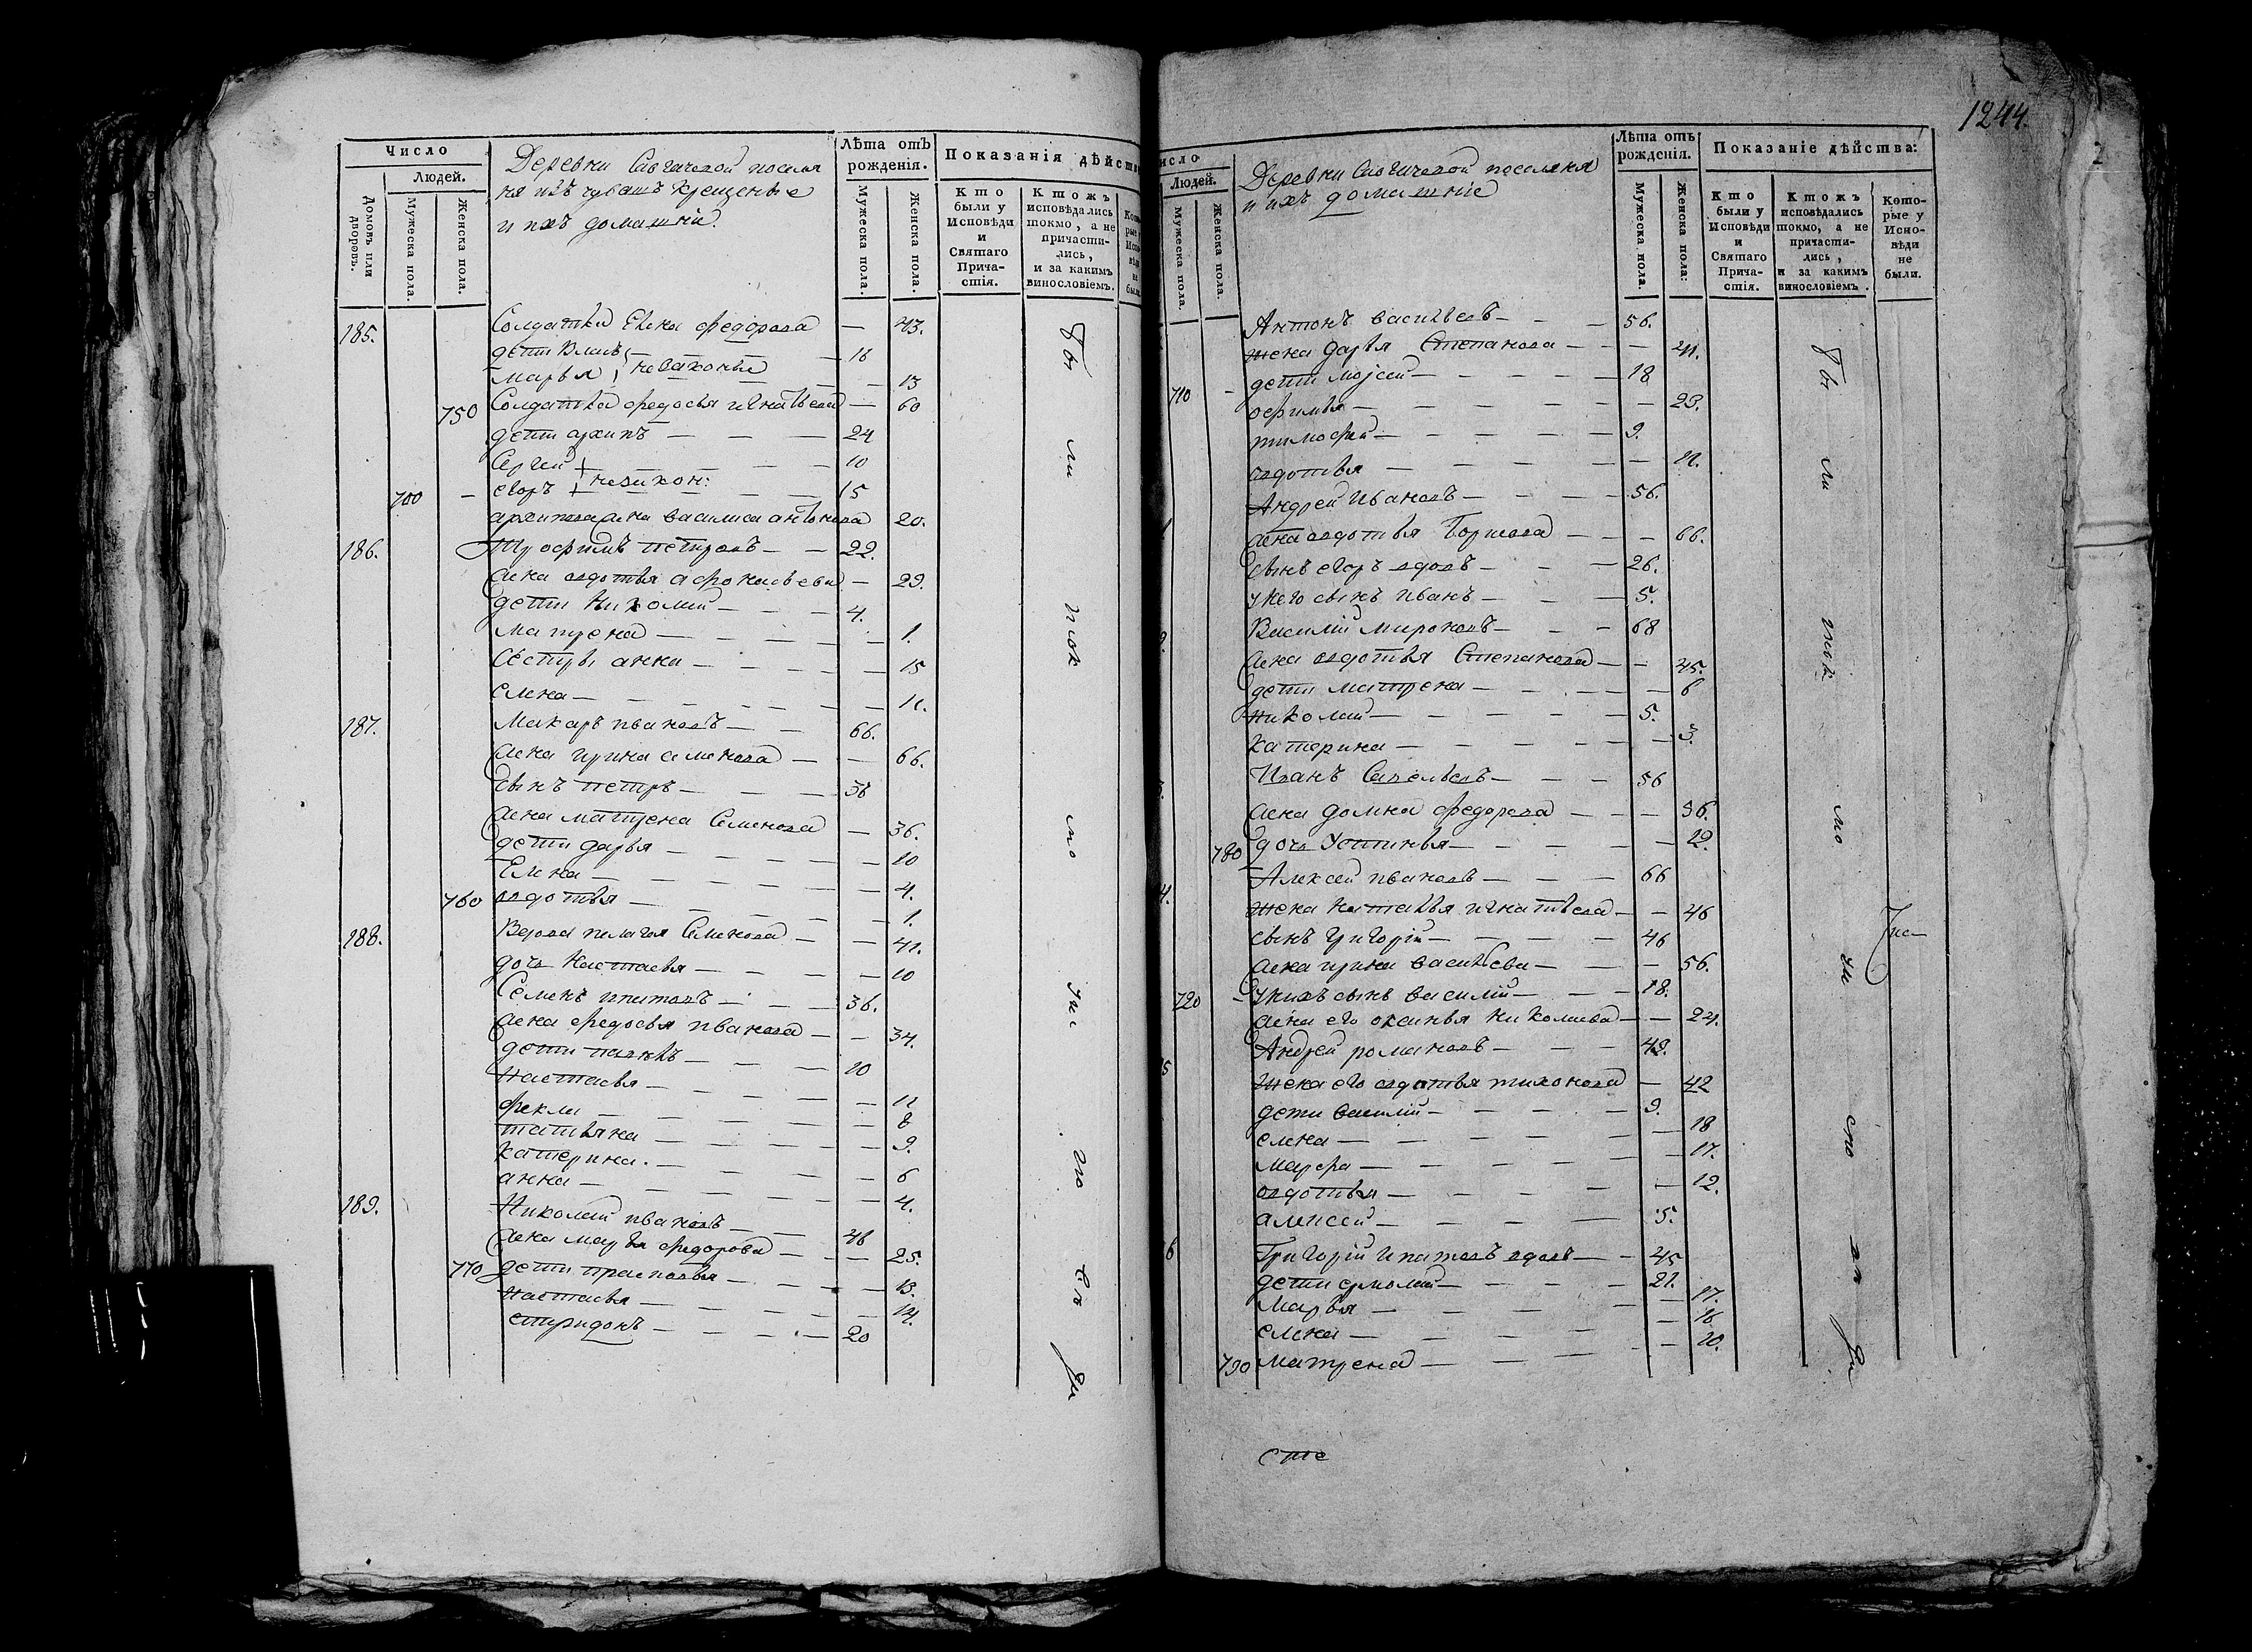 Число
Людей.
Домовъ или дворовъ.
Мужеска пола.
Женска пола.
Деревни поселя
не изъ чувашъ крещеные
и ихъ домашніе.
Лѣта отъ рожденія.
Мужеска пола.
Женска пола.
Показанія дѣйств
Кто были у Исповѣди и Святаго Причастія.
Ктожъ исповѣдались токмо, а не причастились, и за какимъ винословіемъ.
185. Солдатка федорова — 43.
дети — 16
Марья незаконные — 13
750 Солдатка федосья игнатьева — 60
дети архипъ — 24
Сергей — 10
700 — егоръ незакон: — 15
архипова жена василиса антонова 20.
186. Трофимъ петровъ — 22.
жена авдотья афонасьева — 29.
дети Николай — 4.
матрена — 1.
Сестры анна — 15
елена — 11.
187. Макаръ ивановъ — 66.
жена ирина семенова — 66.
сынъ петръ — 36
жена матрена Семенова — 36.
дети дарья — 10
Елена — 4.
760 авдотья — 1.
188. Вдова пелагея Семенова — 41.
дочь Настасья — 10
Семенъ ипатовъ — 36.
жена федосья иванова — 34.
дети — 10
Настасья — 11
фекла — 8
татьяна — 9.
катерина. — 6
анна — 4.
189. Николай ивановъ — 46
жена марья федорова — 25.
770 дети прасковья — 13.
настасья — 14.
спиридонъ — 20
1244.
исло
Людей.
Мужеска пола
Женска пола.
Деревни поселяня
и ихъ домашніе
Лѣта отъ рожденія.
Мужеска пола.
Женска пола:
Показаніе дѣйства:
Кто были у Исповѣди и Святаго Причастія.
Ктожъ исповѣдались токмо, а не причастились, и за какимъ винословіемъ.
Которые у Исповѣди не были.
Антонъ васильевъ — 56.
жена дарья Степанова — 41.
710 — дети мойсей — 18
офимья — 23.
тимофей — 9.
авдотья — 11.
Андрей Ивановъ — 56.
жена авдотья — 66.
сынъ егоръ вдовъ — 26.
у него сынъ иванъ — 5.
Василий мироновъ — 68
жена авдотья Степанова — 45.
дети матрена — 6
николай — 5.
катерина — 3.
Иванъ Савельевъ — 56
жена домна федорова — 36.
780 дочь Устинья — 12.
Алексей ивановъ — 66
жена наталья игнатьева — 46
сынъ григорій — 46
жена ирина васильева — 56.
720 — у нихъ сынъ василій — 18.
жена его оксинья николаева — 24.
Андрей романовъ — 42.
жена его авдотья тихонова — 42
дети василій — 9.
елена — 18
марфа — 17.
авдотья — 12.
алексей — 5.
Григорій ипатовъ вдовъ — 45
дети ермолай — 21.
Марья — 17.
елена — 16
790 матрена — 10.
сте